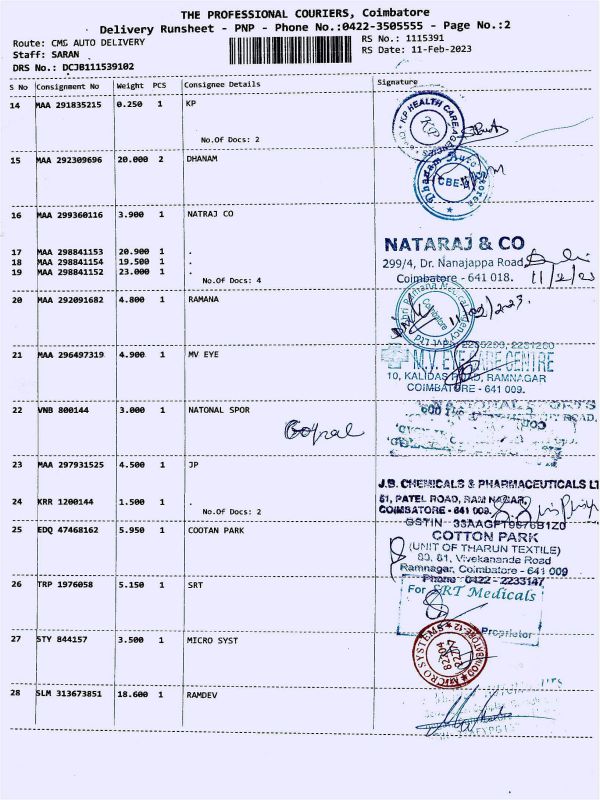 THE PROFESSIONAL COURIERS, Coimbatore
Delivery Runsheet - PNP - Phone No.:0422-3505555 - Page No.:2
Route: CMS AUTO DELIVERY
RS No.: 1115391
Staff: SARAN
RS Date: 11-Feb-2023
DRS No.: DCJB111539102
S No Consignment No Weight PCS Consignee Details Signature
14 MAA 291835215 0.250 1 KP
KP HEALTH CARE AGENCIES
KP
No.Of Docs: 2
15 MAA 292309696 20.000 2 DHANAM
Dhanam Auto Stores
CBE
16 MAA 299360116 3.900 1 NATRAJ CO
NATARAJ & CO
17 MAA 298841153 20.900 1 .
299/4, Dr. Nanajappa Road,
18 MAA 298841154 19.500 1 .
19 MAA 298841152 23.000 1 .
Coimbatore - 641 018.
11/2/23
No.Of Docs: 4
20 MAA 292091682 4.800 1 RAMANA
Coimbatore
11/02/2023.
21 MAA 296497319 4.900 1 MV EYE
M.V. EYE CARE CENTRE
10, KALIDAS ROAD, RAMNAGAR
COIMBATORE - 641 009.
22 VNB 800144 3.000 1 NATONAL SPOR
Gopal
23 MAA 297931525 4.500 1 JP
J.B. CHEMICALS & PHARMACEUTICALS LT
51, PATEL ROAD, RAM NAGAR,
24 KRR 1200144 1.500 1 .
COIMBATORE - 641 009.
No.Of Docs: 2
25 EDQ 47468162 5.950 1 COOTAN PARK
COTTON PARK
(UNIT OF THARUN TEXTILE)
Ramnagar, Coimbatore - 641 009
Phone : 0422 - 2233147
26 TRP 1976058 5.150 1 SRT
For SRT Medicals
Proprietor
27 STY 844157 3.500 1 MICRO SYST
MICRO SYSTEMS
COIMBATORE-12
28 SLM 313673851 18.600 1 RAMDEV